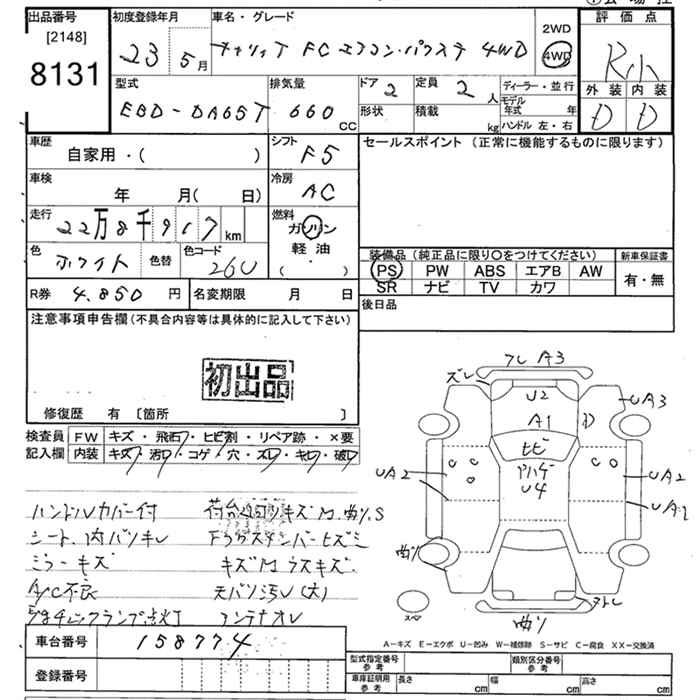 出品番号 [2148] 8131
初度登録年月 23年 5月
車名・グレード キャリイT FC エアコン・パワステ 4WD
2WD 4WD
評価点 R小
外装 内装
D D
型式 EBD-DA65T
排気量 660 CC
ドア 2 形状
定員 2 人 積載 kg
ディーラー・並行
モデル年式 年
ハンドル 左・右
車歴 自家用・( )
シフト F5
セールスポイント (正常に機能するものに限ります)
車検 年 月( 日)
冷房 AC
走行 22万8千917 km
燃料 ガソリン 軽油 ( ・ )
色 ホワイト 色替 色コード 26U
装備品 (純正品に限り○をつけてください) 新車保証書
PS PW ABS エアB AW 有・無
SR ナビ TV カワ
R券 4,850 円 名変期限 月 日
後日品
注意事項申告欄 (不具合内容等は具体的に記入して下さい)
初出品
修復歴 有 〔箇所 〕
検査員記入欄
FW キズ・飛石・ヒビ割・リペア跡・×要
内装 キズ・汚レ・コゲ・穴・ズレ・キレ・破レ
ハンドルカバー付
シート、内バリキレ
ミラーキズ
A/C不良
チェックランプ点灯
キズ
天バリ汚レ(大)
アンテナオレ
フレ A3
ズレ
U2
A1
UA3
D
ヒビ
UA2
U4
UA2
UA2
曲り
曲り
A-キズ E-エクボ U-凹み W-補修跡 S-サビ C-腐食 XX-交換済
車台番号 158774
登録番号
型式指定番号 参考 類別区分番号 参考
車庫証明用 参考 長さ cm 幅 cm 高さ cm